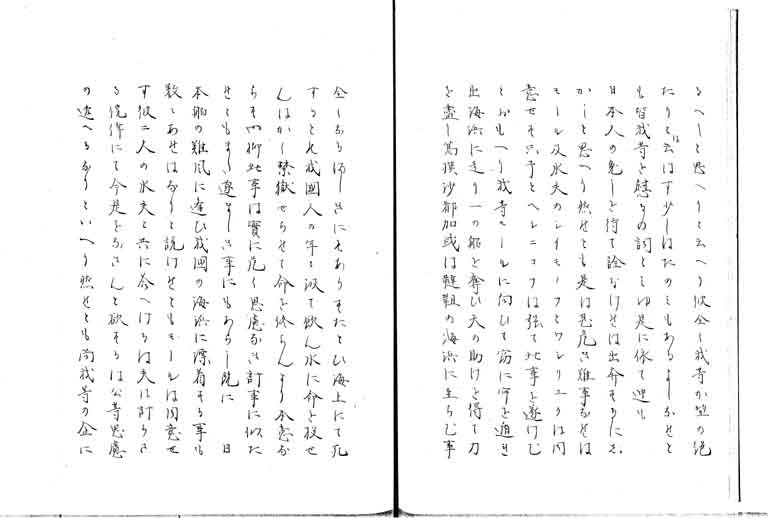 るへしと思へりと云へり彼全く我等か望の絶
たりと云はす少しはたのみもあるよしなれと
も皆我等を慰るの詞としゆ是に依て迚も
日本人の免しを待て詮なけれは出奔するに
かしと思へり然れとも是は甚危き難事なれは
モール及水夫のシイモーフとワシリユエフは同
意せす只予とヘレニコフは強て此事を遂けむ
とおもへり我等モールに向ひて窃に牢を遁れ
出海浜に走り一の船を奪ひ天の助けを得て力
を盡し葛模沙都加或は韃靼の海浜に至らむ事
全くなる にもありすたとひ海上にて死
するとも我國人の年々 水に命を投せ
んはかく禁獄せられて命を終らんより本意な
らすや抑此事は實に危く思慮なき訂事に似た
れともまた遂ましき事にもあらし既に 日
本船の難風に逢ひ我國の海浜に漂着する事も
数々あれはなりと説けれともモールは同意せ
す彼二人の水夫と共に答へけるは夫は計らさ
る僥倖にて今是をなさんと欲するは公等思慮
の違へるなりといへり然れとも尚我等の企に